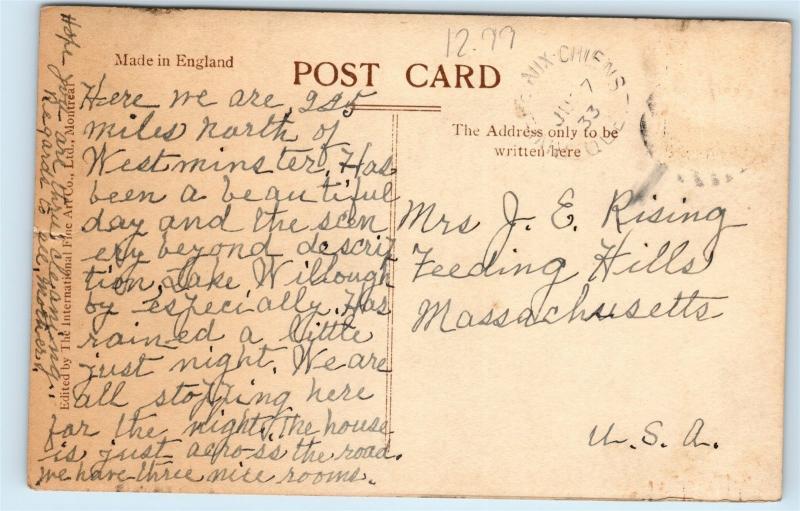 12.99
Made in England
POST CARD
AUX-CHIENS
JU 7
33
QUE
The Address only to be
written here
Here we are, 225
miles north of
Westminster. Has
been a beautiful
day and the scen
ery beyond descrip
tion, Lake Willough
by especially. Has
rained a little
just night. We are
all stopping here
for the night, the house
is just across the road.
we have three nice rooms.
Hope you are thru cleaning.
Regards to all, Mother.
Edited by The International Fine Art Co., Ltd., Montreal
Mrs J. E. Rising
Feeding Hills
Massachusetts
U. S. A.